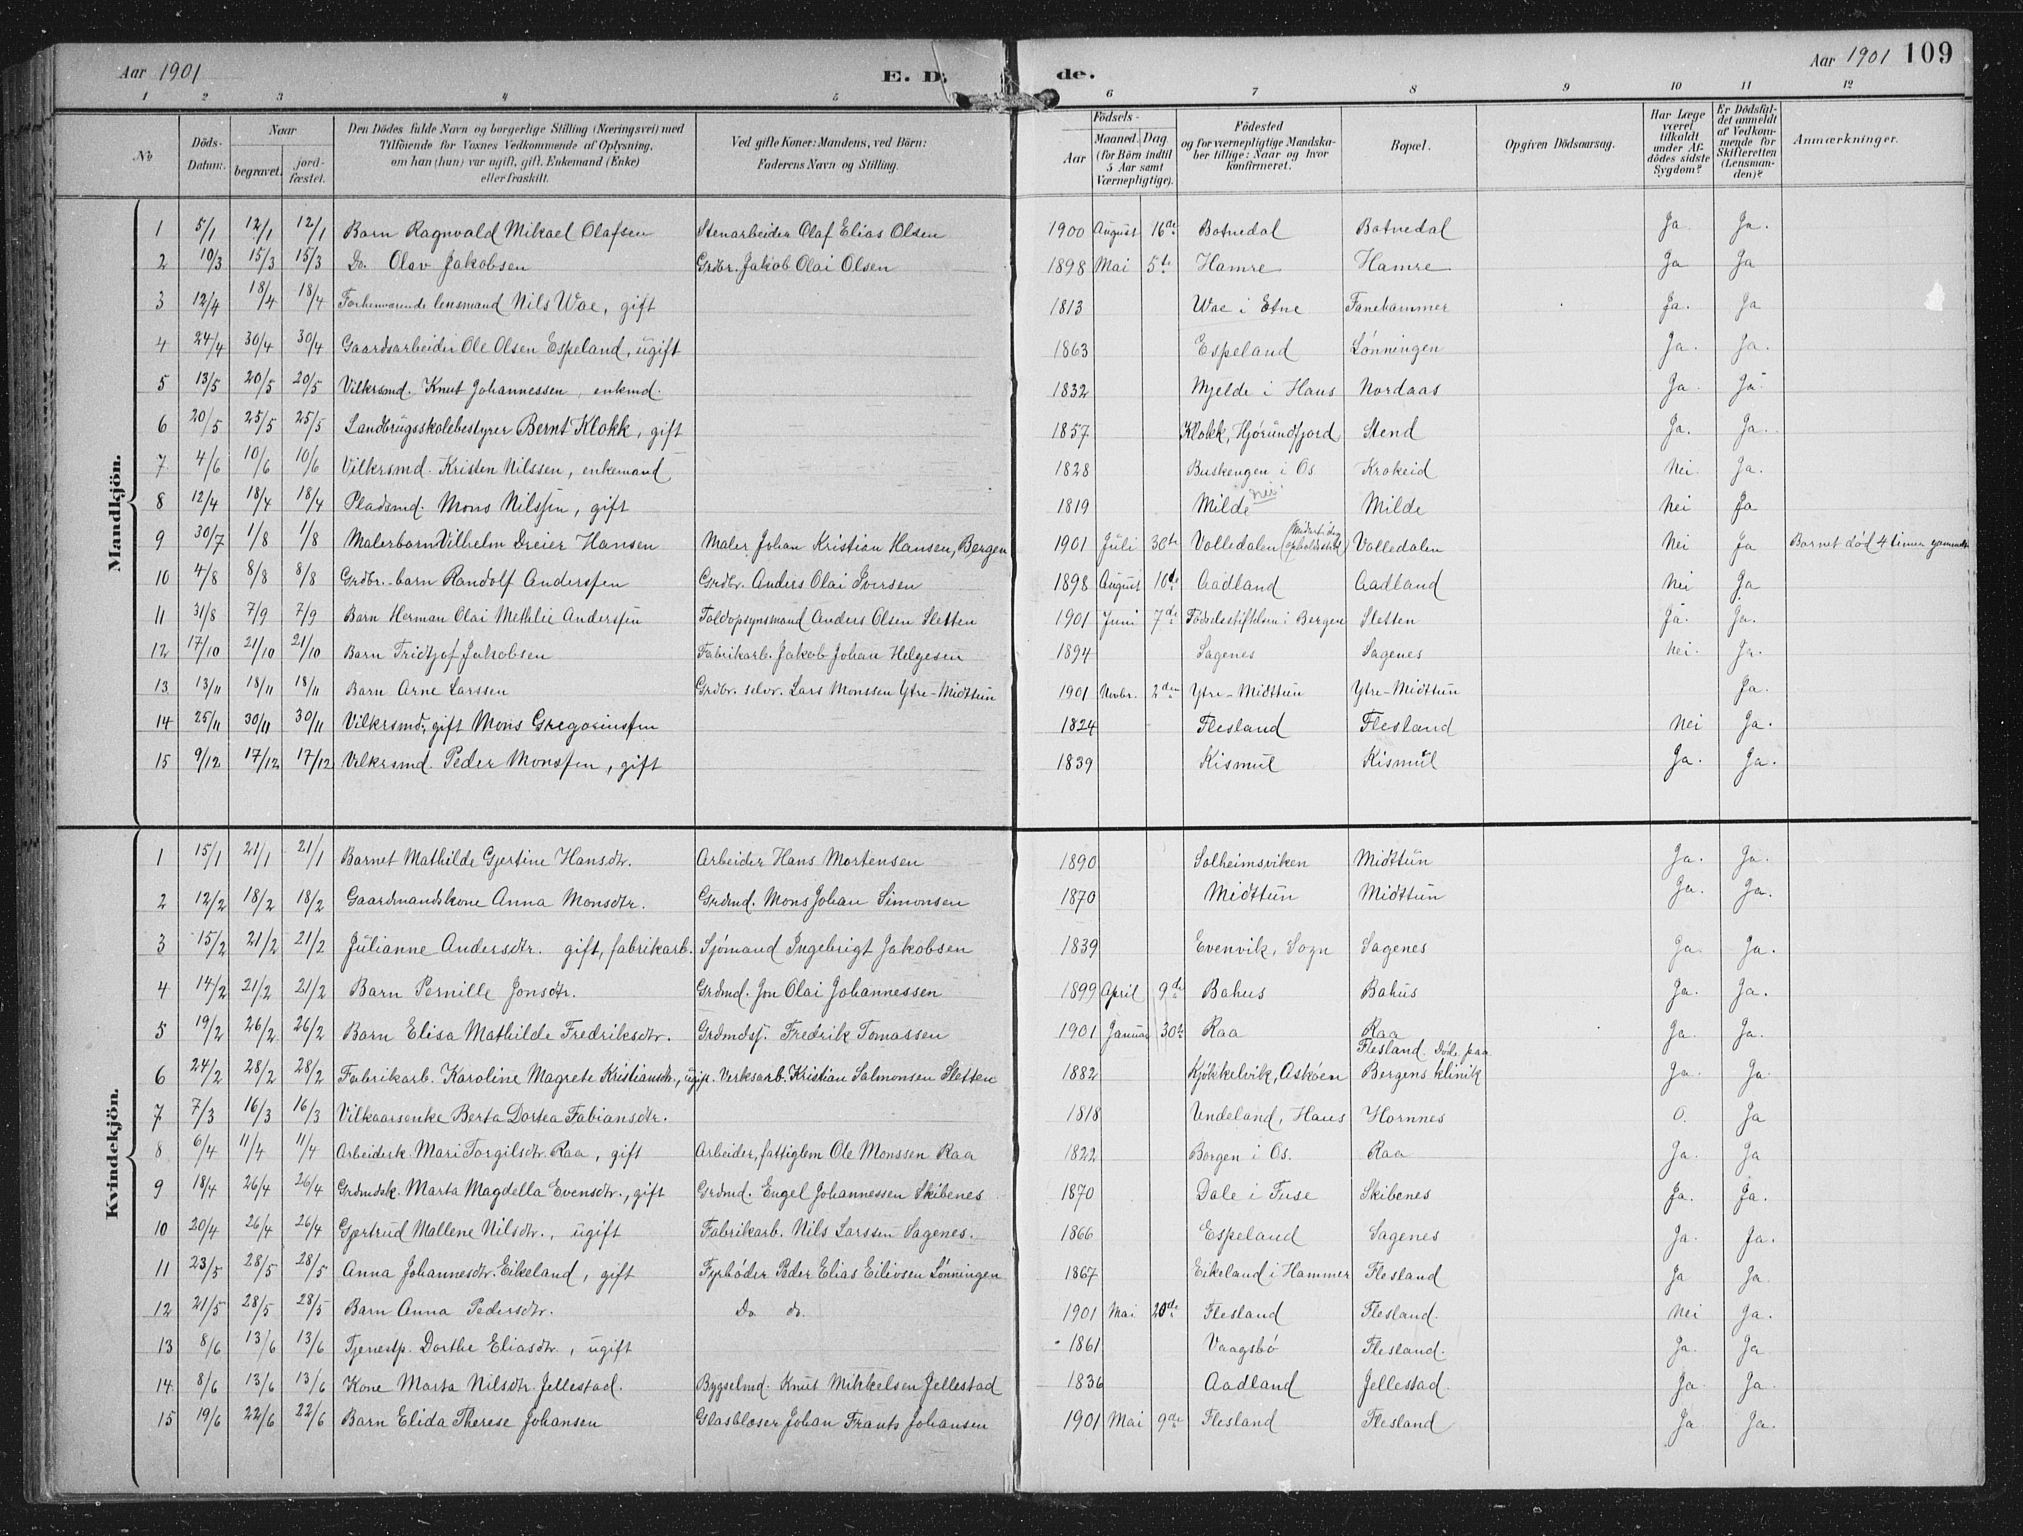 Aar 1901 E. Dö- de. Aar 1901 109
1 2 3 4 5 6 7 8 9 10 11 12
No Döds-Datum. Naar begravet. jordfæstet. Den Dödes fulde Navn og borgerlige Stilling (Næringsvei) med Tilföiende for Voxnes Vedkommende af Oplysning, om han (hun) var ugift, gift, Enkemand (Enke) eller fraskilt. Ved gifte Koner: Mandens, ved Börn: Faderens Navn og Stilling. Födsels- Aar Maaned. Dag. (for Börn indtil 5 Aar samt Værnepligtige). Födested og for værnepligtige Mandskaber tillige: Naar og hvor konfirmeret. Bopæl. Opgiven Dödsaarsag. Har Læge været tilkaldt under Afdödes sidste Sygdom? Er Dödsfaldet anmeldt af Vedkommende for Skifteretten (Lensmanden)? Anmærkninger.
Mandkjön.
1 5/1 12/1 12/1 Barn Ragnvald Mikael Olafsen Stenarbeider Olaf Elias Olsen 1900 August 16de Botnedal Botnedal Ja Ja.
2 10/3 15/3 15/3 Do. Olav Jakobsen Grdbr. Jakob Olai Olsen 1898 Mai 5te Hamre Hamre Ja Ja
3 12/4 18/4 18/4 Forhenværende lensmand Nils Wae, gift 1813 Wae i Etne Fanehammer Ja. Ja
4 24/4 30/4 30/4 Gaardsarbeider Ole Olsen Espeland, ugift 1863 Espeland Lønningen Ja. Ja.
5 13/5 20/5 20/5 Vilkrsmd. Knut Johannessen, enkmd. 1832 Mjelde i Haus Nordaas Ja. Ja
6 20/5 25/5 25/5 Landbrugsskolebestyrer Bernt Klokk, gift 1857 Klokk, Hjørundfjord Stend Ja. Ja.
7 4/6 10/6 10/6 Vilkrsmd. Kristen Nilssen, enkemand 1828 Buskengen i Os Krokeid Nei Ja.
8 12/4 18/4 18/4 Pladsmd. Mons Nilssen, gift 1819 Milde nei Milde Nei Ja
9 30/7 1/8 1/8 Malerbarn Vilhelm Dreier Hansen Maler Johan Kristian Hansen, Bergen 1901 Juli 30te Valledalen Valledalen Nei Ja Barnet død 4 timer gammelt
10 4/8 8/8 8/8 Grdbr.-barn Randolf Anderssen Grdbr. Anders Olai Iversen 1898 August 10de Aadland Aadland Nei Ja
11 31/8 7/9 7/9 Barn Herman Olai Methlie Anderssen Toldopsynsmand Anders Olsen Sletten 1901 Juni 7de Fødselsstiftelsen i Bergen Sletten Ja. Ja.
12 17/10 21/10 21/10 Barn Fridtjof Jakobsen Fabrikarb. Jakob Johan Helgesen 1894 Sagenes Sagenes Nei. Ja.
13 13/11 18/11 18/11 Barn Arne Larssen Grdbr. selvr. Lars Monssen Ytre-Midttun 1901 Novbr. 2den Ytre-Midttun Ytre-Midttun Ja.
14 25/11 30/11 30/11 Vilkrsmd, gift Mons Gregoriussen 1824 Flesland Flesland Nei Ja.
15 9/12 17/12 17/12 Vilkrsmd. Peder Monssen, gift 1839 Kismul Kismul Ja. Ja.
Kvindekjön.
1 15/1 21/1 21/1 Barnet Mathilde Gjertine Hansdtr. Arbeider Hans Mortensen 1890 Solheimsviken Midttun Ja. Ja.
2 12/2 18/2 18/2 Gaardmandskone Anna Monsdtr. Grdmd. Mons Johan Simonsen 1870 Midttun Midttun Ja. Ja.
3 15/2 21/2 21/2 Julianne Andersdtr. gift, fabrikarb. Sjømand Ingebrigt Jakobsen 1839 Evenvik, Sogn Sagenes Ja. Ja.
4 14/2 21/2 21/2 Barn Pernille Jonsdtr. Grdmd. Jon Olai Johannessen 1899 April 9de Bahus Bahus Ja. Ja.
5 19/2 26/2 26/2 Barn Elisa Mathilde Fredriksdtr. Grdmdsf. Fredrik Tomassen 1901 Januar 30te Raa Raa Ja. Ja.
6 24/2 28/2 28/2 Fabrikarb. Karoline Magrete Kristiansdtr., ugift. Verksarb. Kristian Salmonsen Sletten 1882 Kjøkkelvik, Askøen Flesland. Døde paa Bergens klinik Ja. Ja.
7 7/3 16/3 16/3 Vilkaarsenke Berta Dortea Fabiansdtr. 1818 Undeland, Haus Hornnes O. Ja
8 6/4 11/4 11/4 Arbeidersk. Mari Torgilsdtr. Raa, gift Arbeider, fattiglem Ole Monssen Raa 1822 Borgen i Os. Raa Ja. Ja
9 18/4 26/4 26/4 Grdmdsk. Marta Magdella Evensdtr., gift Grdmd. Engel Johannessen Skibenes 1870 Dale i Fuse Skibenes Ja. Ja.
10 20/4 26/4 26/4 Gjertrud Mallene Nilsdtr., ugift Fabrikarb. Nils Larssen Sagenes. 1866 Espeland Sagenes Ja. Ja.
11 23/5 28/5 28/5 Anna Johannesdtr. Eikeland, gift Fyrbøder Peder Elias Eilivsen Lønningen 1867 Eikeland i Hammer Flesland Ja Ja.
12 21/5 28/5 28/5 Barn Anna Pedersdtr. Do do. 1901 Mai 20de Flesland Flesland. Nei Ja.
13 8/6 13/6 13/6 Tjenestp. Dorthe Eliasdtr, ugift 1861 Vaagsbø Flesland. Ja. Ja
14 8/6 13/6 13/6 Kone Marta Nilsdtr. Jellestad. Bygselmd. Knut Mikkelsen Jellestad 1836 Aadland Jellestad. Ja. Ja.
15 19/6 22/6 22/6 Barn Elida Therese Johansen Glasblæser Johan Frants Johansen 1901 Mai 9de Flesland Flesland Ja Ja.